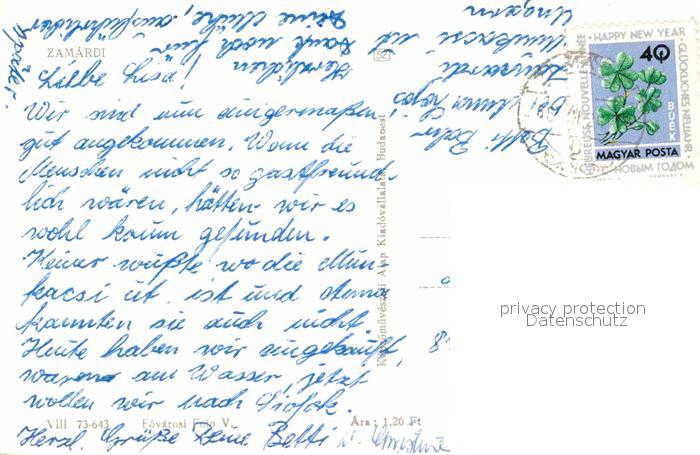 ZAMÁRDI
Liebe Lisa!
Wir sind nun einigermaßen
gut angekommen. Wenn die
Menschen nicht so gastfreund-
lich wären, hätten wir es
wohl kaum gefunden.
Keiner wußte wo die Mun-
kacsi út. ist und Anna
kannten sie auch nicht.
Heute haben wir eingekauft,
waren am Wasser, jetzt
wollen wir nach Siofok.
Herzl. Grüße Deine Betti u. Christine
Herzlichen
Dank noch für
Deine Mühe, ausführlicher
später.
Betti
bei Anna
Zamardi
Munkacsi út
Ungarn
VIII 73-643 Fővárosi Foto V. Ára: 1,20 Ft
Képzőművészeti Alap Kiadóvállalata, Budapest
HAPPY NEW YEAR
GLÜCKLICHES NEUJAHR
С НОВЫМ ГОДОМ
HEUREUSE NOUVELLE ANNÉE
40
BUÉK
MAGYAR POSTA
privacy protection
Datenschutz